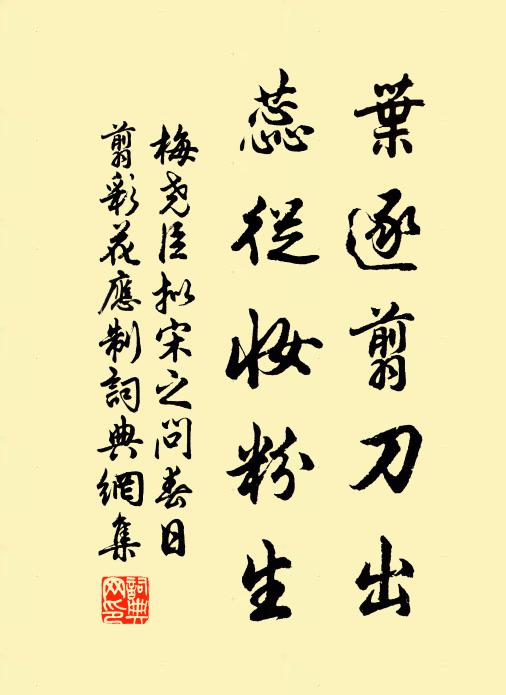 葉逐翦刀出
蕊從妝粉生
梅堯臣拟宋之問春日
翦彩花應制詞典網集
詞典网印